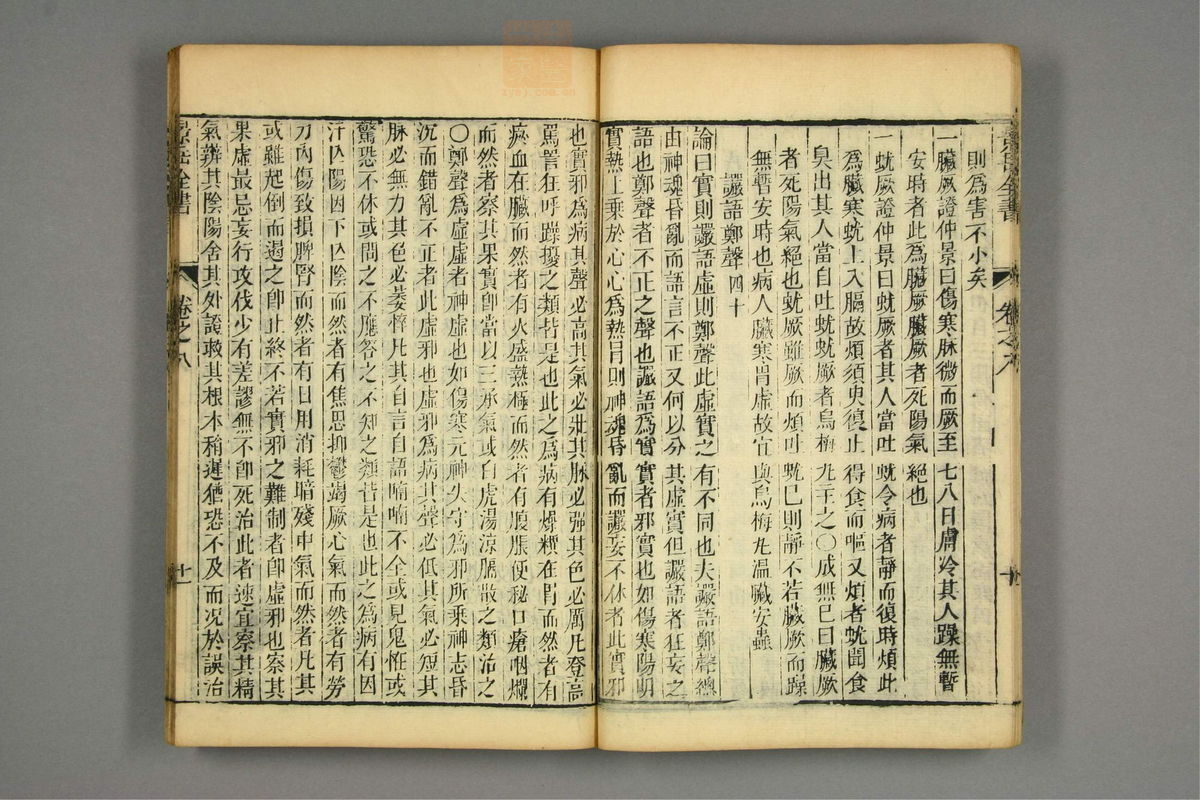 則爲害不小矣
一臟厥證仲景曰傷寒脉微而厥至七八日膚冷其人躁無暫
安時者此爲臟厥臟厥者死陽氣絕也
一蚘厥證仲景曰蚘厥者其人當吐蚘令病者靜而復時煩此
爲臟寒蚘上入膈故煩須臾復止得食而嘔又煩者蚘聞食
臭出其人當自吐蚘蚘厥者烏梅丸主之〇成無已曰臟厥
者死陽氣絕也蚘厥雖厥而煩吐蚘已則靜不若臟厥而躁
無暫安時也病人臟寒胃虛故宜與烏梅丸温臟安蟲
讝語鄭聲四十
論曰實則讝語虛則鄭聲此虛實之有不同也夫讝語鄭聲總
由神魂昏亂而語言不正又何以分其虛實但讝語者狂妄之
語也鄭聲者不正之聲也讝語爲實實者邪實也如傷寒陽明
實熱上乗於心心爲熱冒則神魂昏亂而讝妄不休者此實邪
也實邪爲病其聲必高其氣必壯其脉必彈其色必厲凡登高
罵詈狂呼躁擾之類皆是也此之爲病有燥糞在胃而然者有
瘀血在臟而然者有火盛熱極而然者有腹脹便秘口瘡咽爛
而然者察其果實卽當以三承氣或白虎湯涼膈散之類治之
〇鄭聲爲虛虛者神虛也如傷寒元神失守爲邪所乗神志昏
沉而錯亂不正者此虛邪也虛邪爲病其聲必低其氣必短其
脉必無力其色必萎悴凡其自言自語喃喃不全或見鬼怪或
驚恐不休或問之不應答之不知之類皆是也此之爲病有因
汗亡陽因下亡陰而然者有焦思抑鬱竭厥心氣而然者有勞
力內傷致損脾腎而然者有日用消耗暗殘中氣而然者凡其
或雖起倒而遏之卽止終不若實邪之難制者卽虛邪也察其
果虛最忌妄行攻伐少有差謬無不卽死治此者速宜察其精
氣辨其陰陽舍其外證救其根本稍遲猶恐不及而况於誤治
卷之八
十一